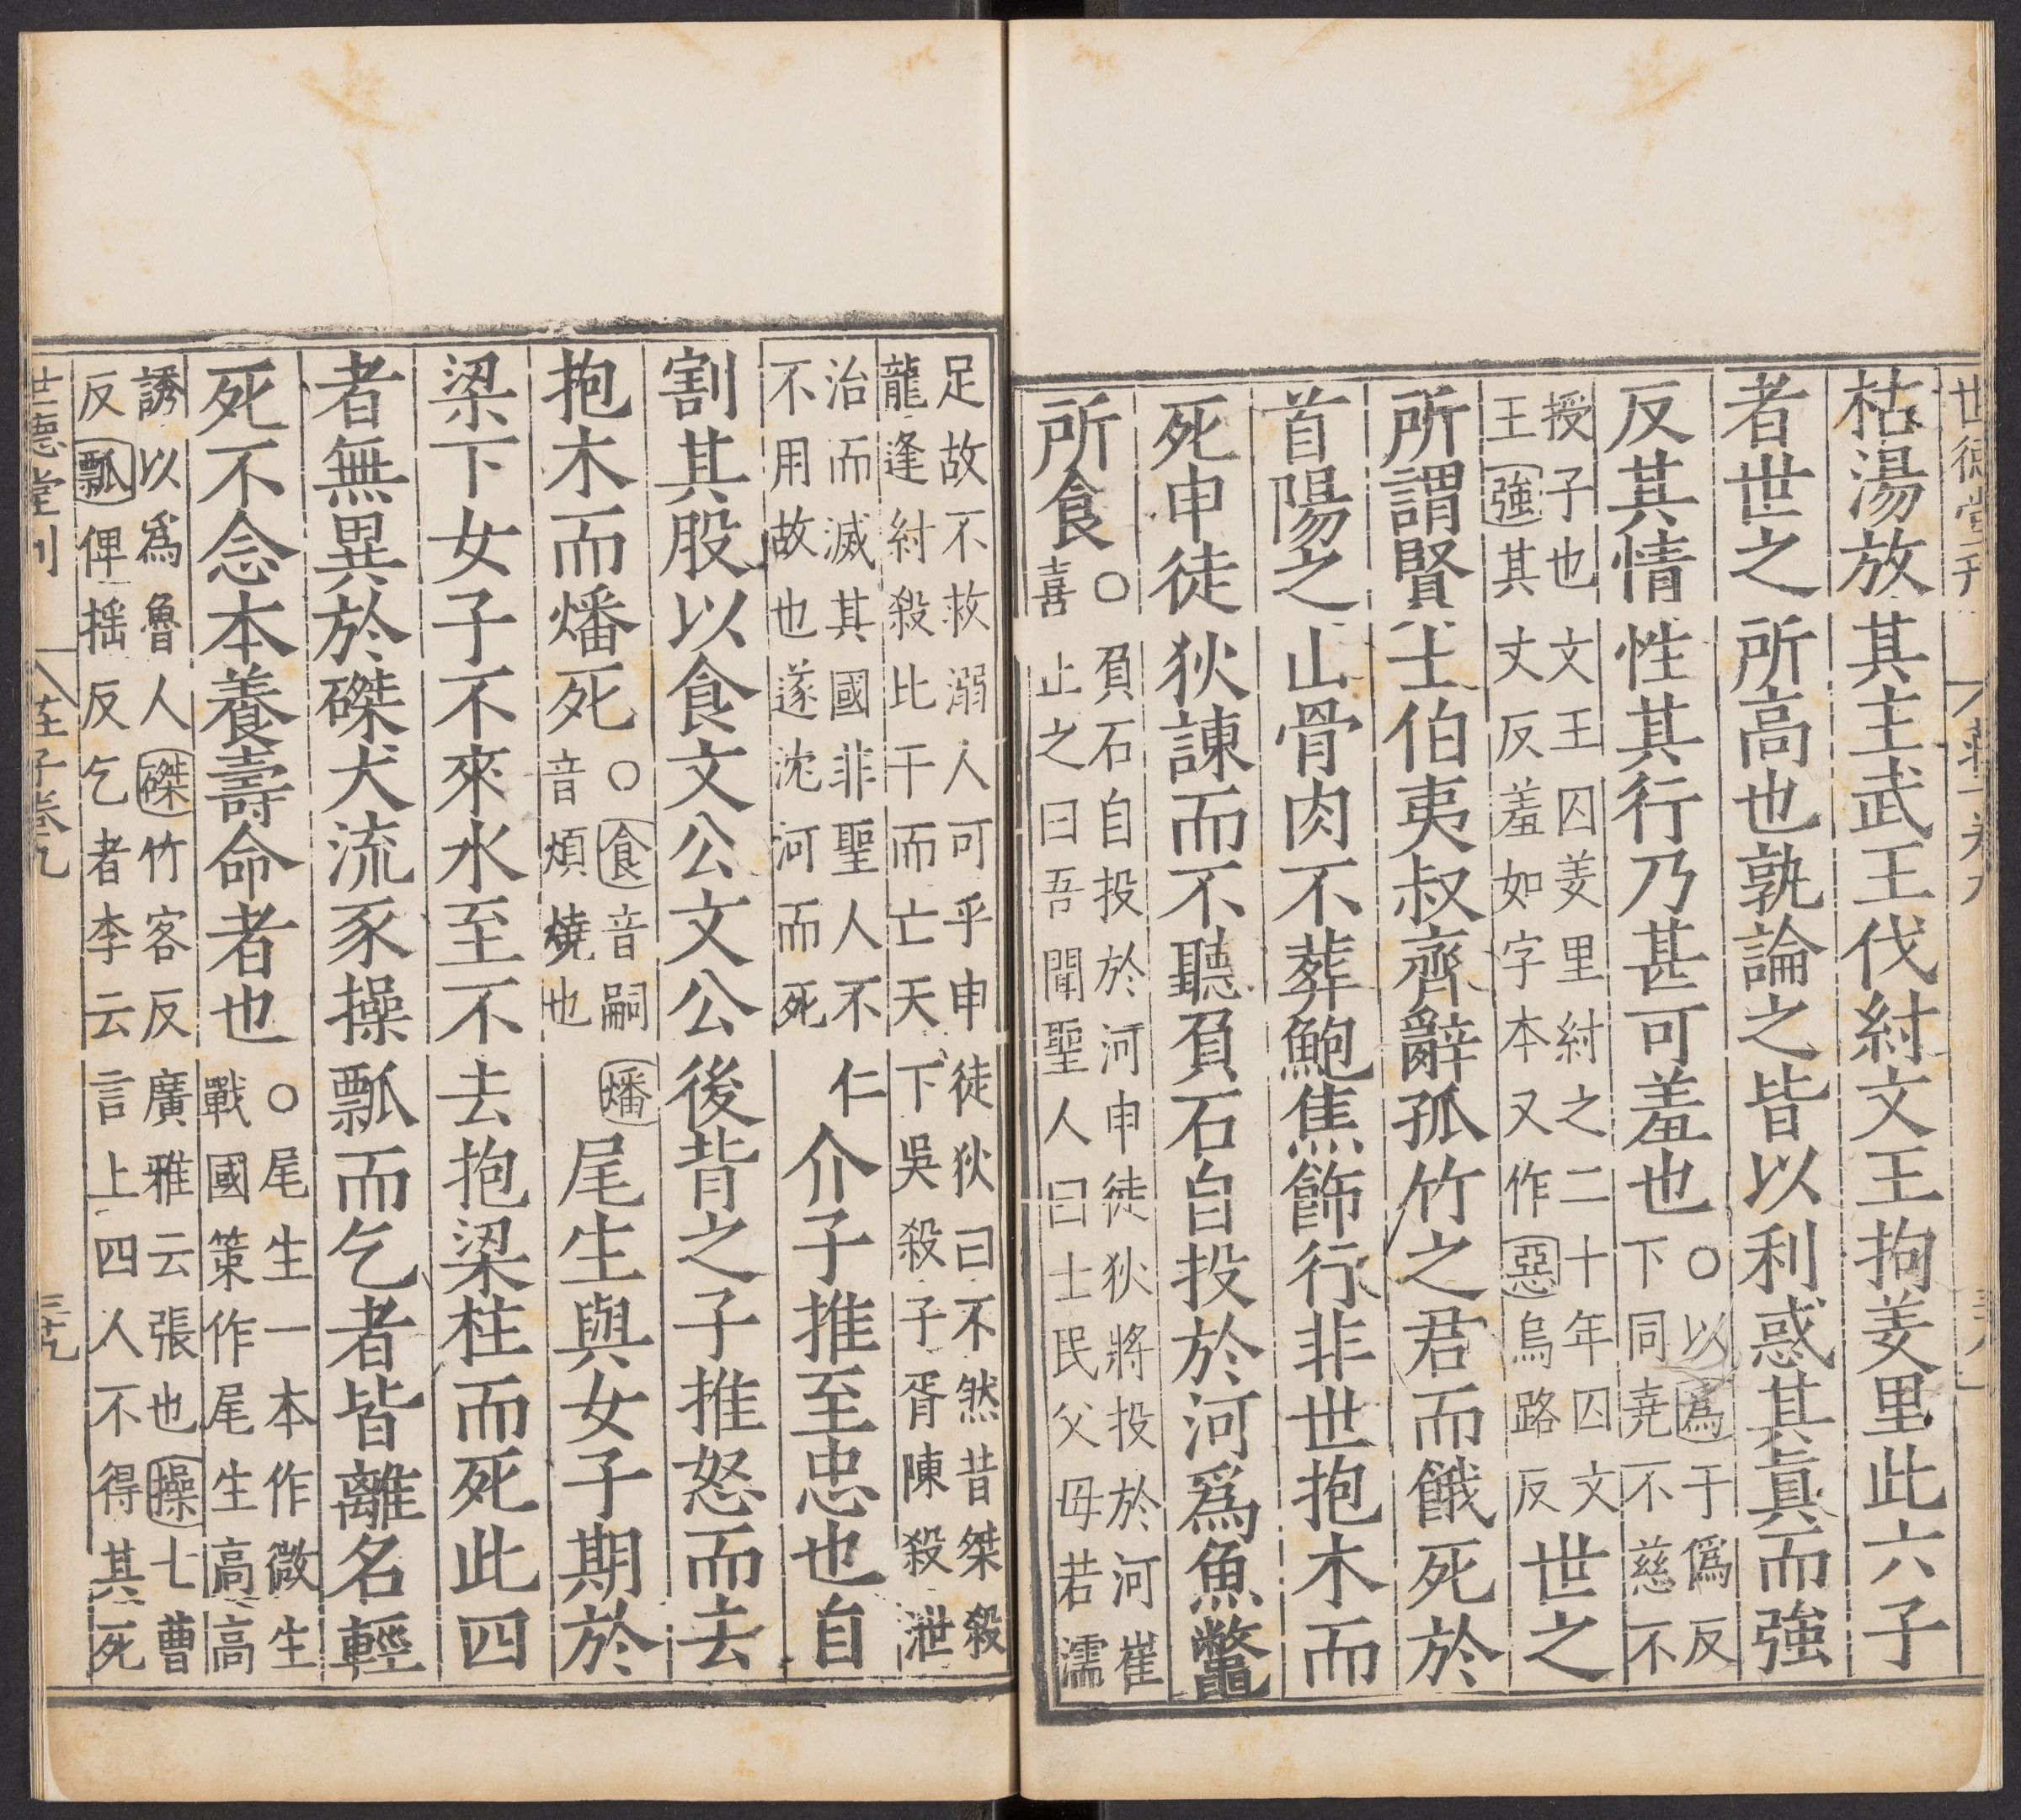 世德堂刊 莊子卷九
枯湯放其主武王伐紂文王拘羑里此六子
者世之所高也孰論之皆以利惑其真而強
反其情性其行乃甚可羞也
○以爲于僞反
下同堯不慈不
授子也文王囚羑里紂之二十年囚文
王強其丈反羞如字本又作惡烏路反
世之
所謂賢士伯夷叔齊辭孤竹之君而餓死於
首陽之山骨肉不葬鮑焦飾行非世抱木而
死申徒狄諫而不聽負石自投於河爲魚鼈
所食
○負石自投於河申徒狄將投於河崔
喜止之曰吾聞聖人曰士民父母若濡
足故不救溺人可乎申徒狄曰不然昔桀殺
龍逢紂殺比干而亡天下吳殺子胥陳殺泄
治而滅其國非聖人不仁
不用故也遂沈河而死
介子推至忠也自
割其股以食文公文公後背之子推怒而去
抱木而燔死
○食音嗣燔
音煩燒也
尾生與女子期於
梁下女子不來水至不去抱梁柱而死此四
者無異於磔犬流豕操瓢而乞者皆離名輕
死不念本養壽命者也
○尾生一本作微生
戰國策作尾生高高
誘以爲魯人磔竹客反廣雅云張也操七曹
反瓢俾搖反乞者李云言上四人不得其死
世德堂刊 莊子卷九 三十九